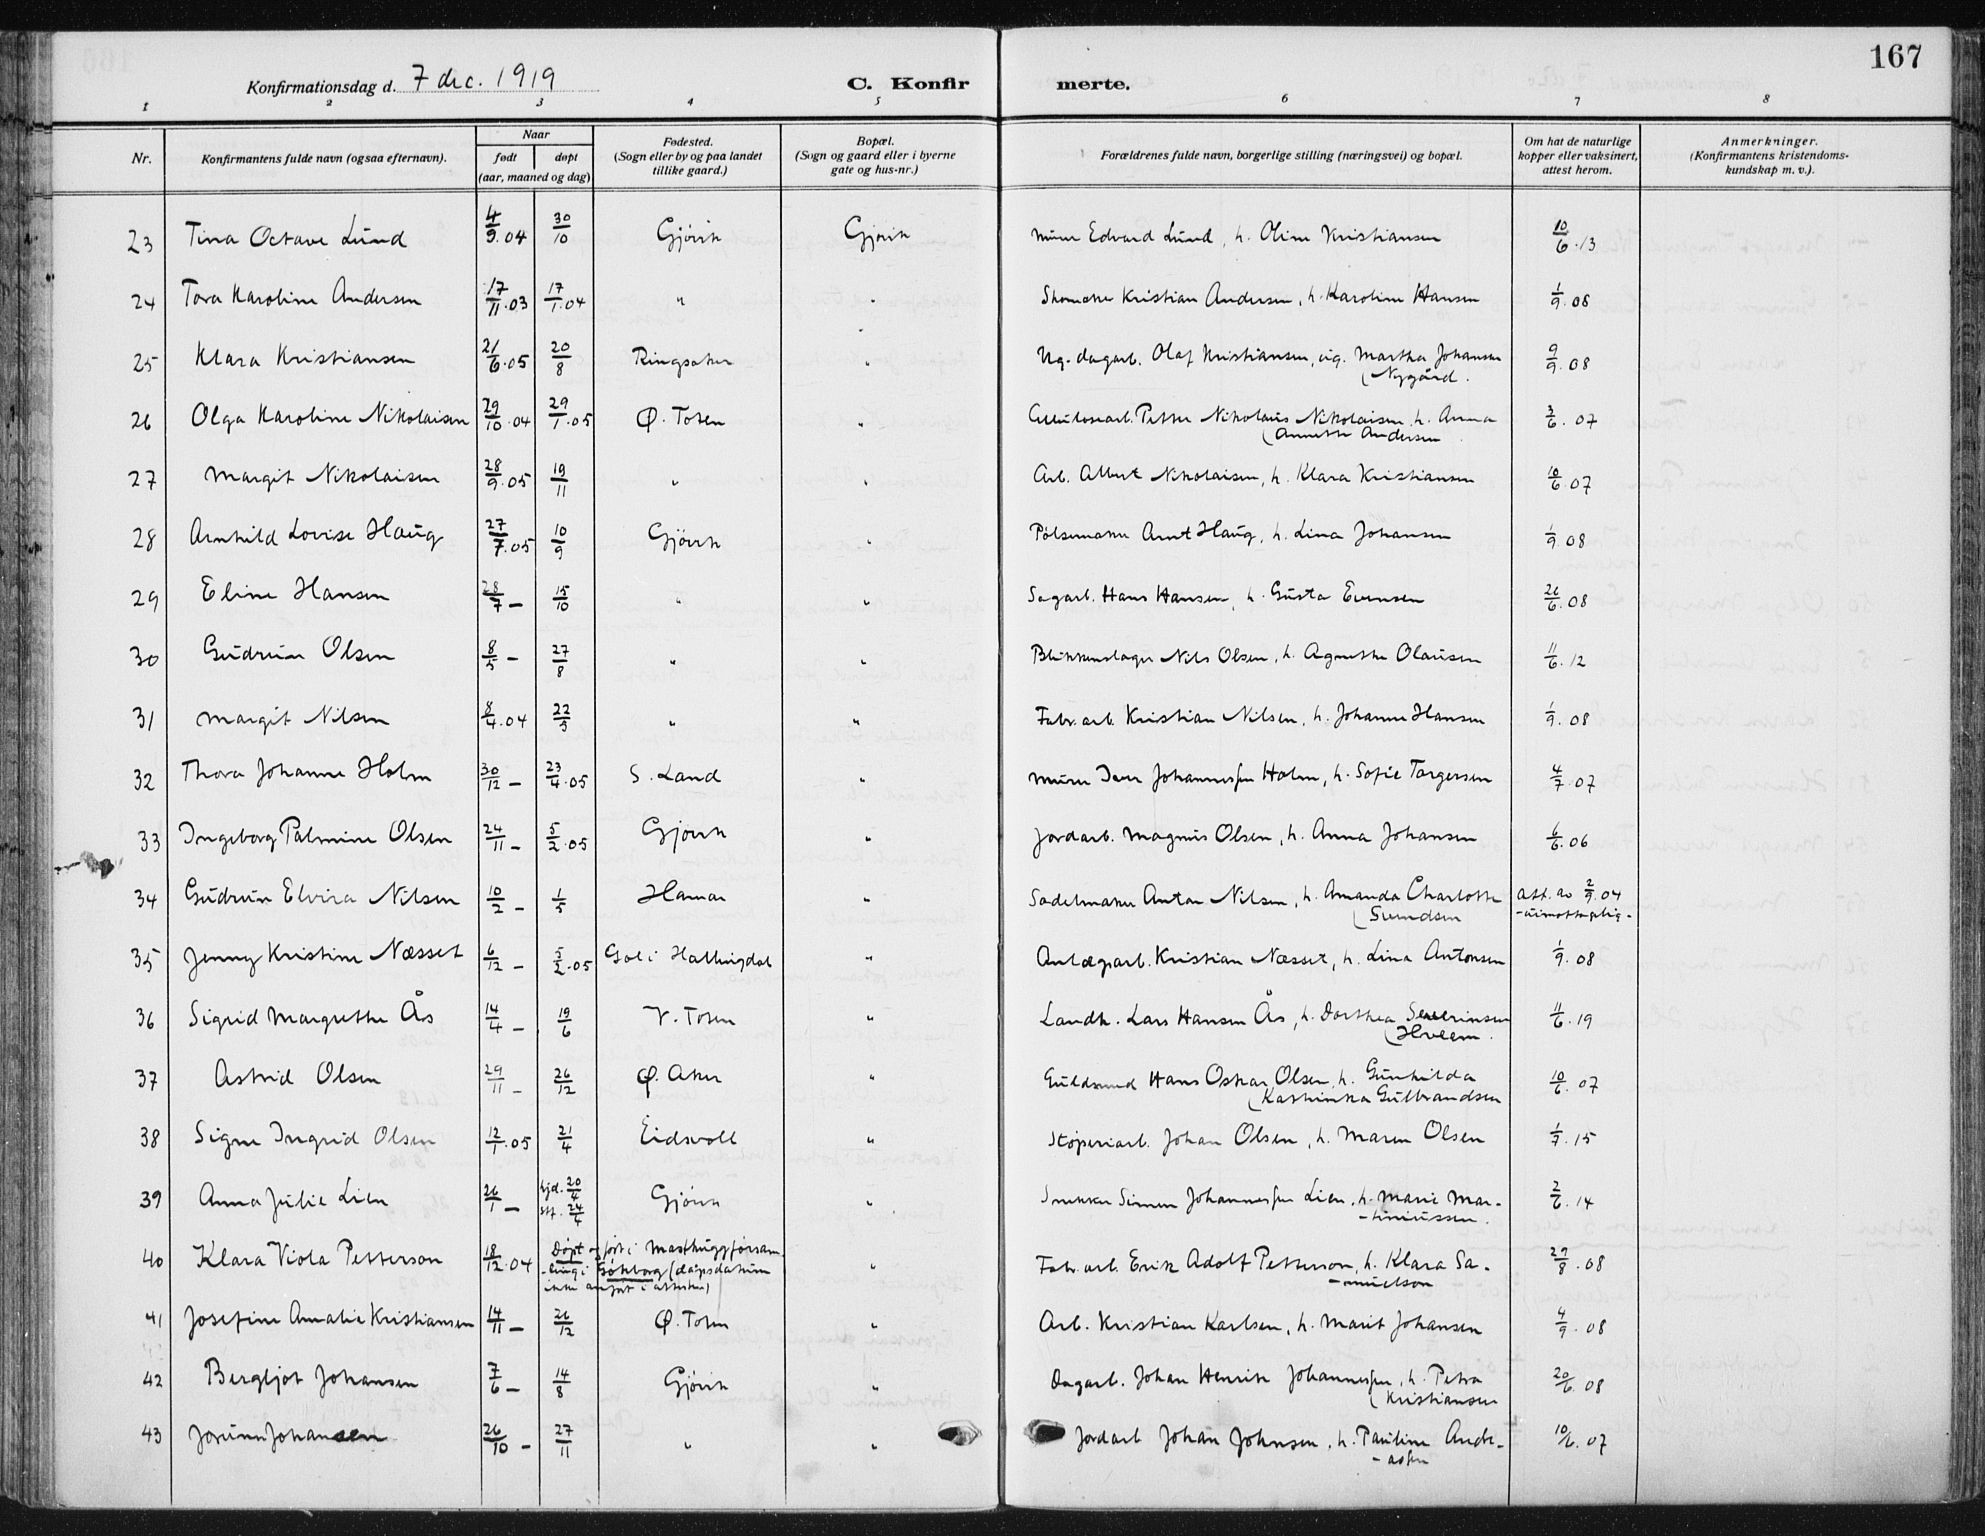 167
Konfirmationsdag d. 7 dec. 1919
C. Konfirmerte.
1 2 3 4 5 6 7 8
Nr. Konfirmantens fulde navn (ogsaa efternavn). Naar født døpt (aar, maaned og dag) Fødested. (Sogn eller by og paa landet tillike gaard.) Bopæl. (Sogn og gaard eller i byerne gate og hus-nr.) Forældrenes fulde navn, borgerlige stilling (næringsvei) og bopæl. Om hat de naturlige kopper eller vaksinert, attest herom. Anmerkninger. (Konfirmantens kristendoms-kundskap m. v.).
23 Tina Octave Lund 4/9.04 30/10 Gjøvik Gjøvik Murer Edvard Lund, h. Oline Kristiansen 10/6.13
24 Tora Karoline Andersen 17/11.03 17/1.04 " " Skomaker Kristian Andersen, h. Karoline Hansen 1/9.08
25 Klara Kristiansen 21/6.05 20/8 Ringsaker " Ug. dagarb. Olaf Kristiansen, pig. Martha Johansen
Nygård. 9/9.08
26 Olga Karoline Nikolaisen 29/10.04 29/1.05 Ø. Toten " Cellulosearb. Petter Nikolaus Nikolaisen, h. Anna
Annette Andersen 3/6.07
27 Margit Nikolaisen 28/9.05 19/11 " " Arb. Albert Nikolaisen, h. Klara Kristiansen 10/6.07
28 Arnhild Lovise Haug 27/7.05 10/9 Gjøvik " Pølsemaker Arnt Haug, h. Lina Johansen 1/9.08
29 Eline Hansen 28/7 – 15/10 " " Sagarb. Hans Hansen, h. Gusta Evensen 26/6.08
30 Gudrun Olsen 8/5 – 27/8 " " Blikkenslager Nils Olsen, h. Agnethe Olausen 11/6.12
31 Margit Nilsen 8/4.04 22/5 " " Fabr. arb. Kristian Nilsen, h. Johanne Hansen 1/9.08
32 Thora Johanne Holm 30/12 – 23/4.05 S. Land " Murer Iver Johannessen Holm, h. Sofie Torgersen 4/7.07
33 Ingeborg Palmine Olsen 24/11 – 5/2.05 Gjøvik " Jordarb. Magnus Olsen, h. Anna Johansen 6/6.06
34 Gudrun Elvira Nilsen 10/2 – 1/5 Hamar " Sadelmaker Anton Nilsen, h. Amanda Charlotte
Svendsen att. av 2/9.04
-uimottagelig-
35 Jenny Kristine Næsset 6/12 – 5/2.05 Gol i Hallingdal " Anlægsarb. Kristian Næsset, h. Lina Antonsen 1/9.08
36 Sigrid Margrethe Ås 14/4 – 19/6 V. Toten " Landh. Lars Hansen Ås, h. Dorthea Severinsen
Hveem. 11/6.19
37 Astrid Olsen 29/11 – 26/12 Ø. Aker " Guldsmed Hans Oskar Olsen, h. Gunhilda
Kathinka Gulbrandsen 10/6.07
38 Signe Ingrid Olsen 12/1.05 21/4 Eidsvoll " Støperiarb. Johan Olsen, h. Maren Olsen 1/7.15
39 Anna Julie Lien 26/1 – hjd. 20/4
stf. 24/4 Gjøvik " Snekker Simen Johannessen Lien, h. Marie Mar-
-tiniussen. 2/6.14
40 Klara Viola Petterson 18/12.04 Døpt og ført i Masthuggförsam-
-ling i Gøteborg (dåpsdatum
ikke anført i attesten) " Fabr. arb. Erik Adolf Petterson, h. Klara Sa-
-muelson 27/8.08
41 Josefine Amalie Kristiansen 14/11 – 26/12 Ø. Toten " Arb. Kristian Karlsen, h. Marit Johansen 4/9.08
42 Bergljot Johansen 7/6 – 14/8 Gjøvik " Dagarb. Johan Henrik Johannessen, h. Petra
Kristiansen 20/6.08
43 Jorunn Johansen 26/10 – 27/11 " " Jordarb Johan Johnsen, h. Pauline Andr-
-assen 10/6.07